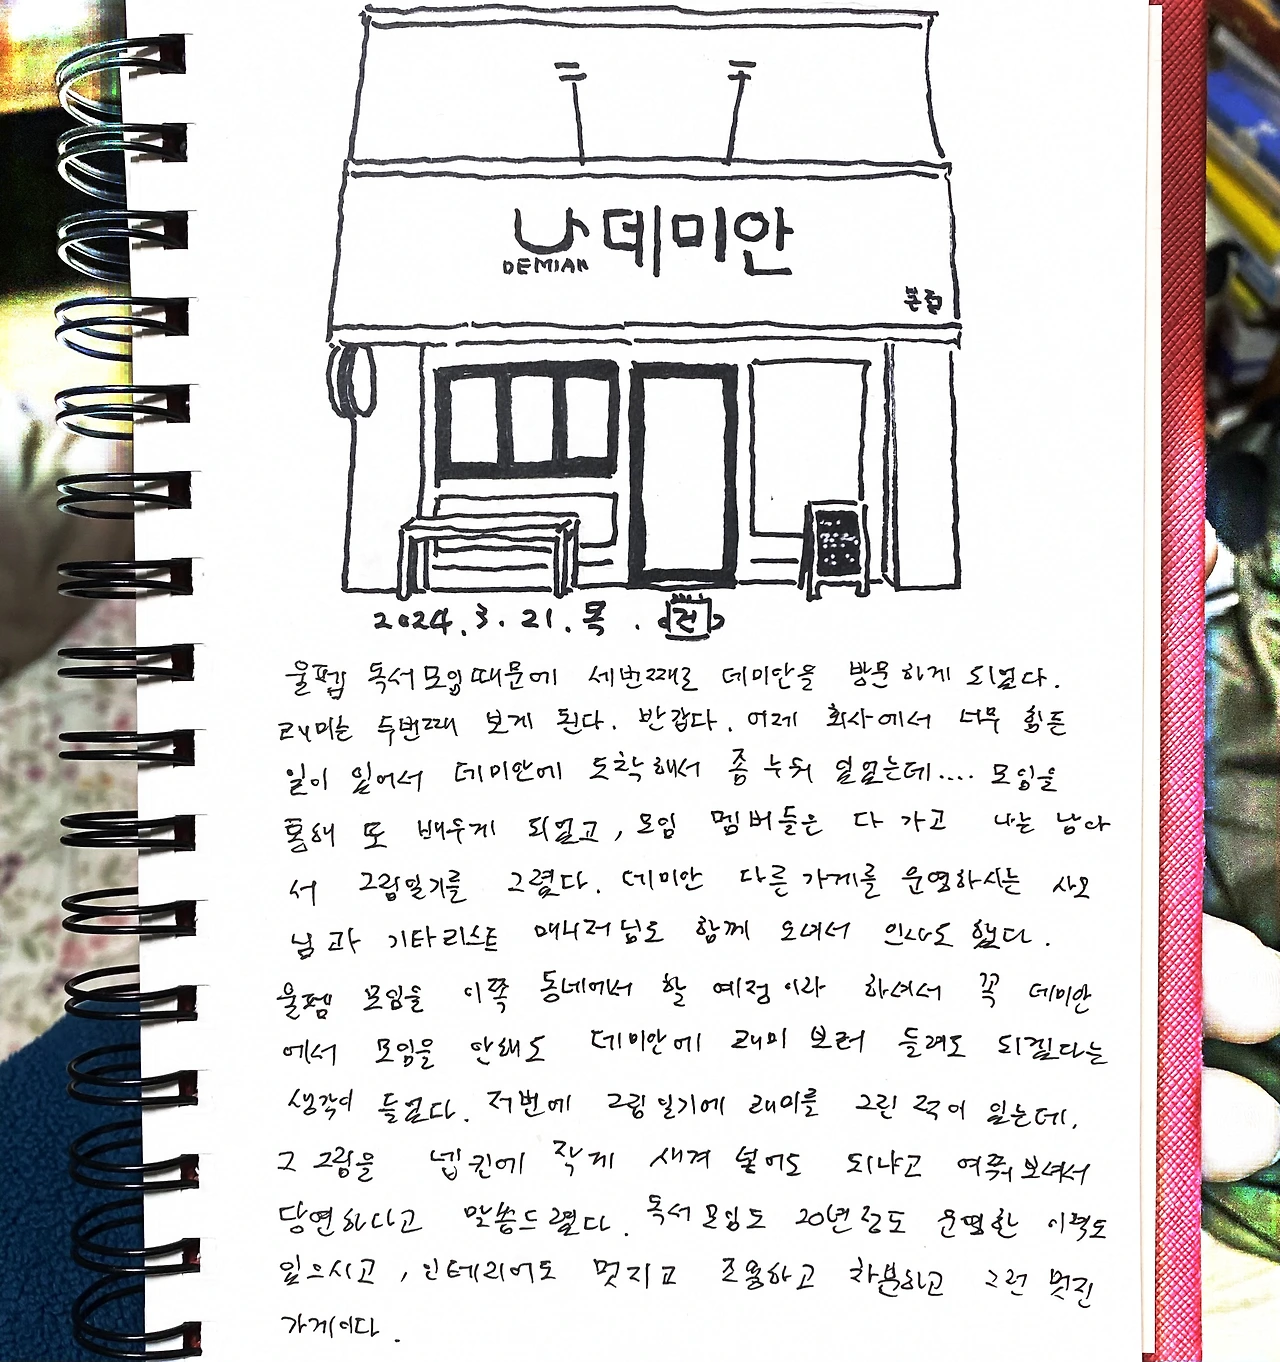 데미안
DEMIAN
본점
2024.3.21.목. 건
울펨 독서모임때문에 세번째로 데미안을 방문하게 되었다.
래미는 두번째 보게 된다. 반갑다. 어제 회사에서 너무 힘든
일이 있어서 데미안에 도착해서 좀 누워 있었는데.... 모임을
통해 또 배우게 되었고, 모임 멤버들은 다 가고 나는 남아
서 그림일기를 그렸다. 데미안 다른가게를 운영하시는 사모
님과 기타리스트 매니저님도 함께 오셔서 인사도 했다.
울펨 모임을 이쪽 동네에서 할 예정이라 하셔서 꼭 데미안
에서 모임을 안해도 데미안에 래미 보러 들려도 되겠다는
생각이 들었다. 저번에 그림일기에 래미를 그린 적이 있는데,
그 그림을 냅킨에 작게 새겨 넣어도 되냐고 여쭤보셔서
당연하다고 말씀드렸다. 독서모임도 20년정도 운영한 이력도
있으시고, 인테리어도 멋지고 조용하고 차분하고 그런 멋진
가게이다.